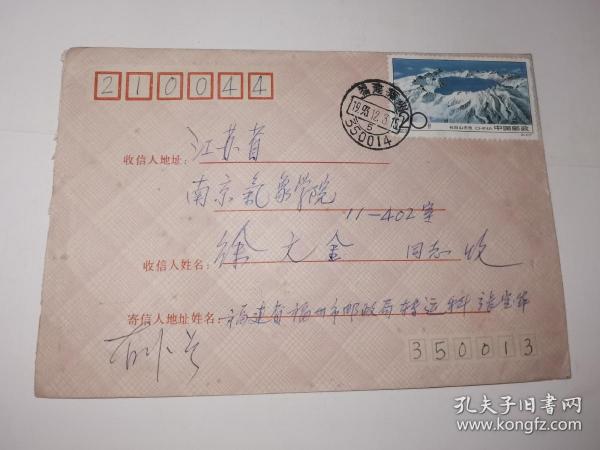 210044
20分
长白山天池 CHINA 中国邮政
福建福州
1993.12.3.15
5
350014
收信人地址: 江苏省
南京氣象学院
11-402室
收信人姓名: 徐大金 同志 收
寄信人地址姓名: 福建省福州市邮政局转运科
350013
孔夫子旧书网
www.kongfz.com